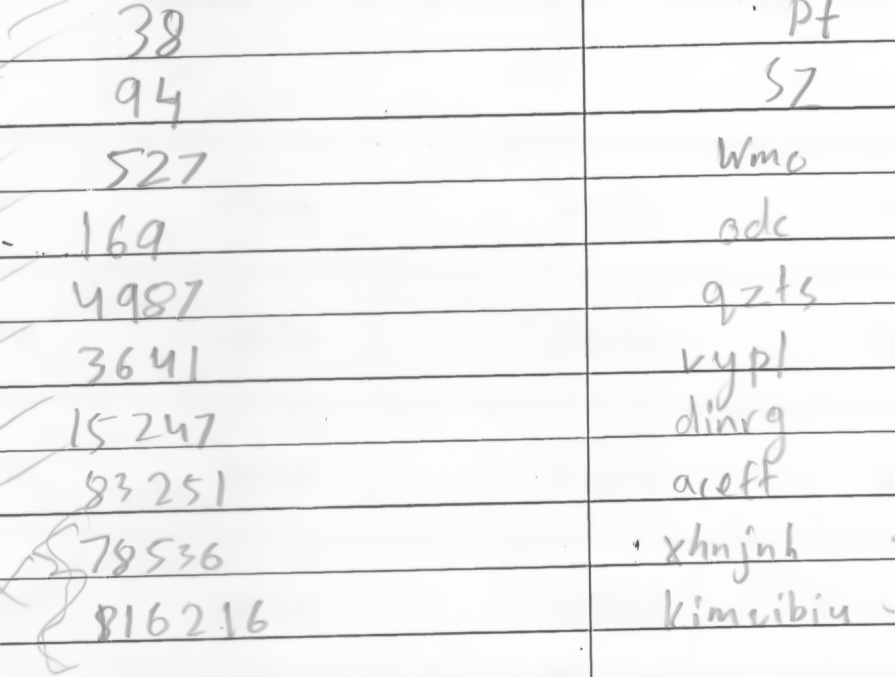 38 pt
94 sz
527 wmo
169 odc
4987 qzts
3641 vypl
15247 dinrg
83251 aceff
78536 xhnjnh
816216